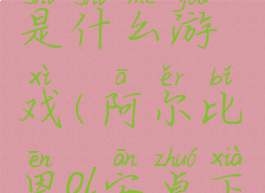 是什么游
xì ā ěr bǐ
戏(阿尔比
ēn ān zhuó xià
恩ol安卓下